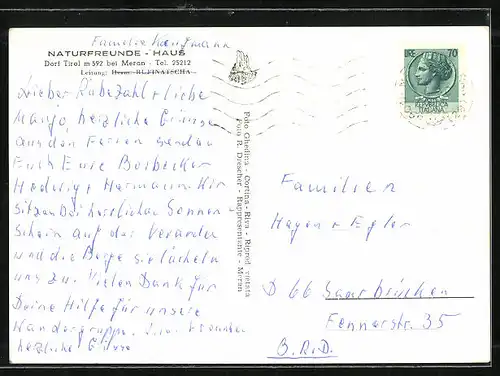 Familie Kaufmann
NATURFREUNDE - HAUS
Dorf Tirol m 592 bei Meran - Tel. 25212
Leitung: Herm. RUFINATSCHA
Lieber Rübezahl + liebe
Margo, herzliche Grüsse
aus den Ferien senden
Euch Eure
Hedwig + Hermann. Wir
sitzen bei herrlichen Sonnen
schein auf der Veranda
und die Berge
uns zu. Vielen Dank für
Deine Hilfe für unsere
Wandergruppe.
herzliche Grüsse
Foto Ghedina - Cortina - Riva - Riprod. vietata
Foto R. Drescher - Rappresentante - Meran
70
Familien
Hagen + Egler
D 66 Saarbrücken
Fennerstr. 35
B.R.D.